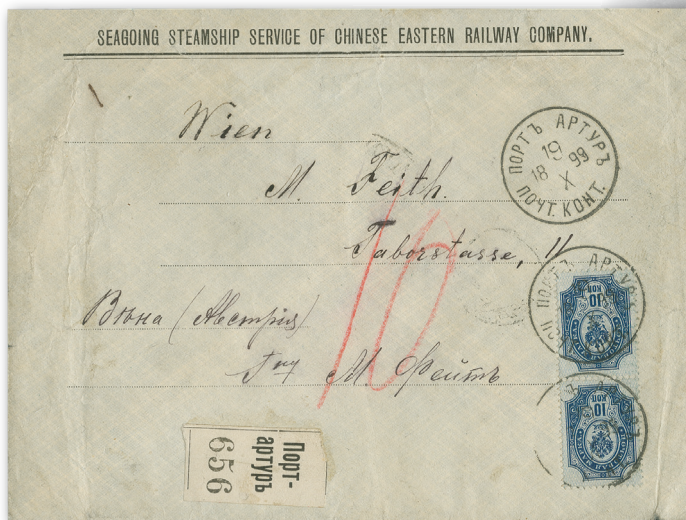 SEAGOING STEAMSHIP SERVICE OF CHINESE EASTERN RAILWAY COMPANY.
Wien
M. Feith.
Taborstasse, 11
Вѣна (Австрія)
Гну М. Фейтъ
ПОРТЪ АРТУРЪ
19
18 99
X
ПОЧТ. КОНТ.
ПОРТЪ АРТУРЪ
10
КОП
10
КОП
Порт-
артуръ
656